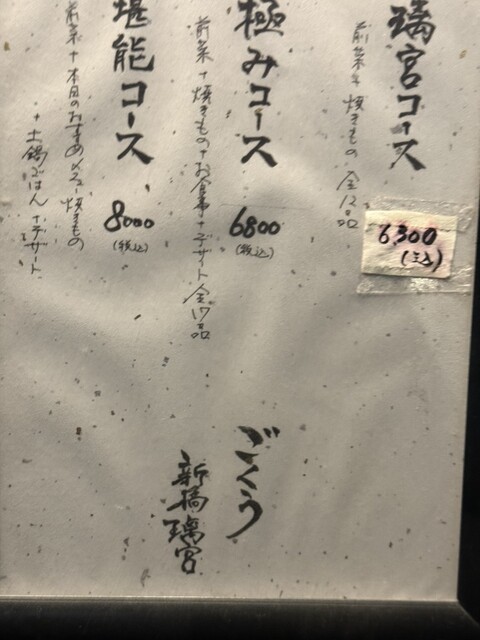 璃宮コース
前菜+焼きもの 全12品
6,300
(税込)
極みコース
前菜+焼きもの+お食事+デザート 全17品
6800
(税込)
堪能コース
前菜+本日のおすすめメニュー焼きもの
+土鍋ごはん+デザート
8000
(税込)
ごくう
新橋璃宮